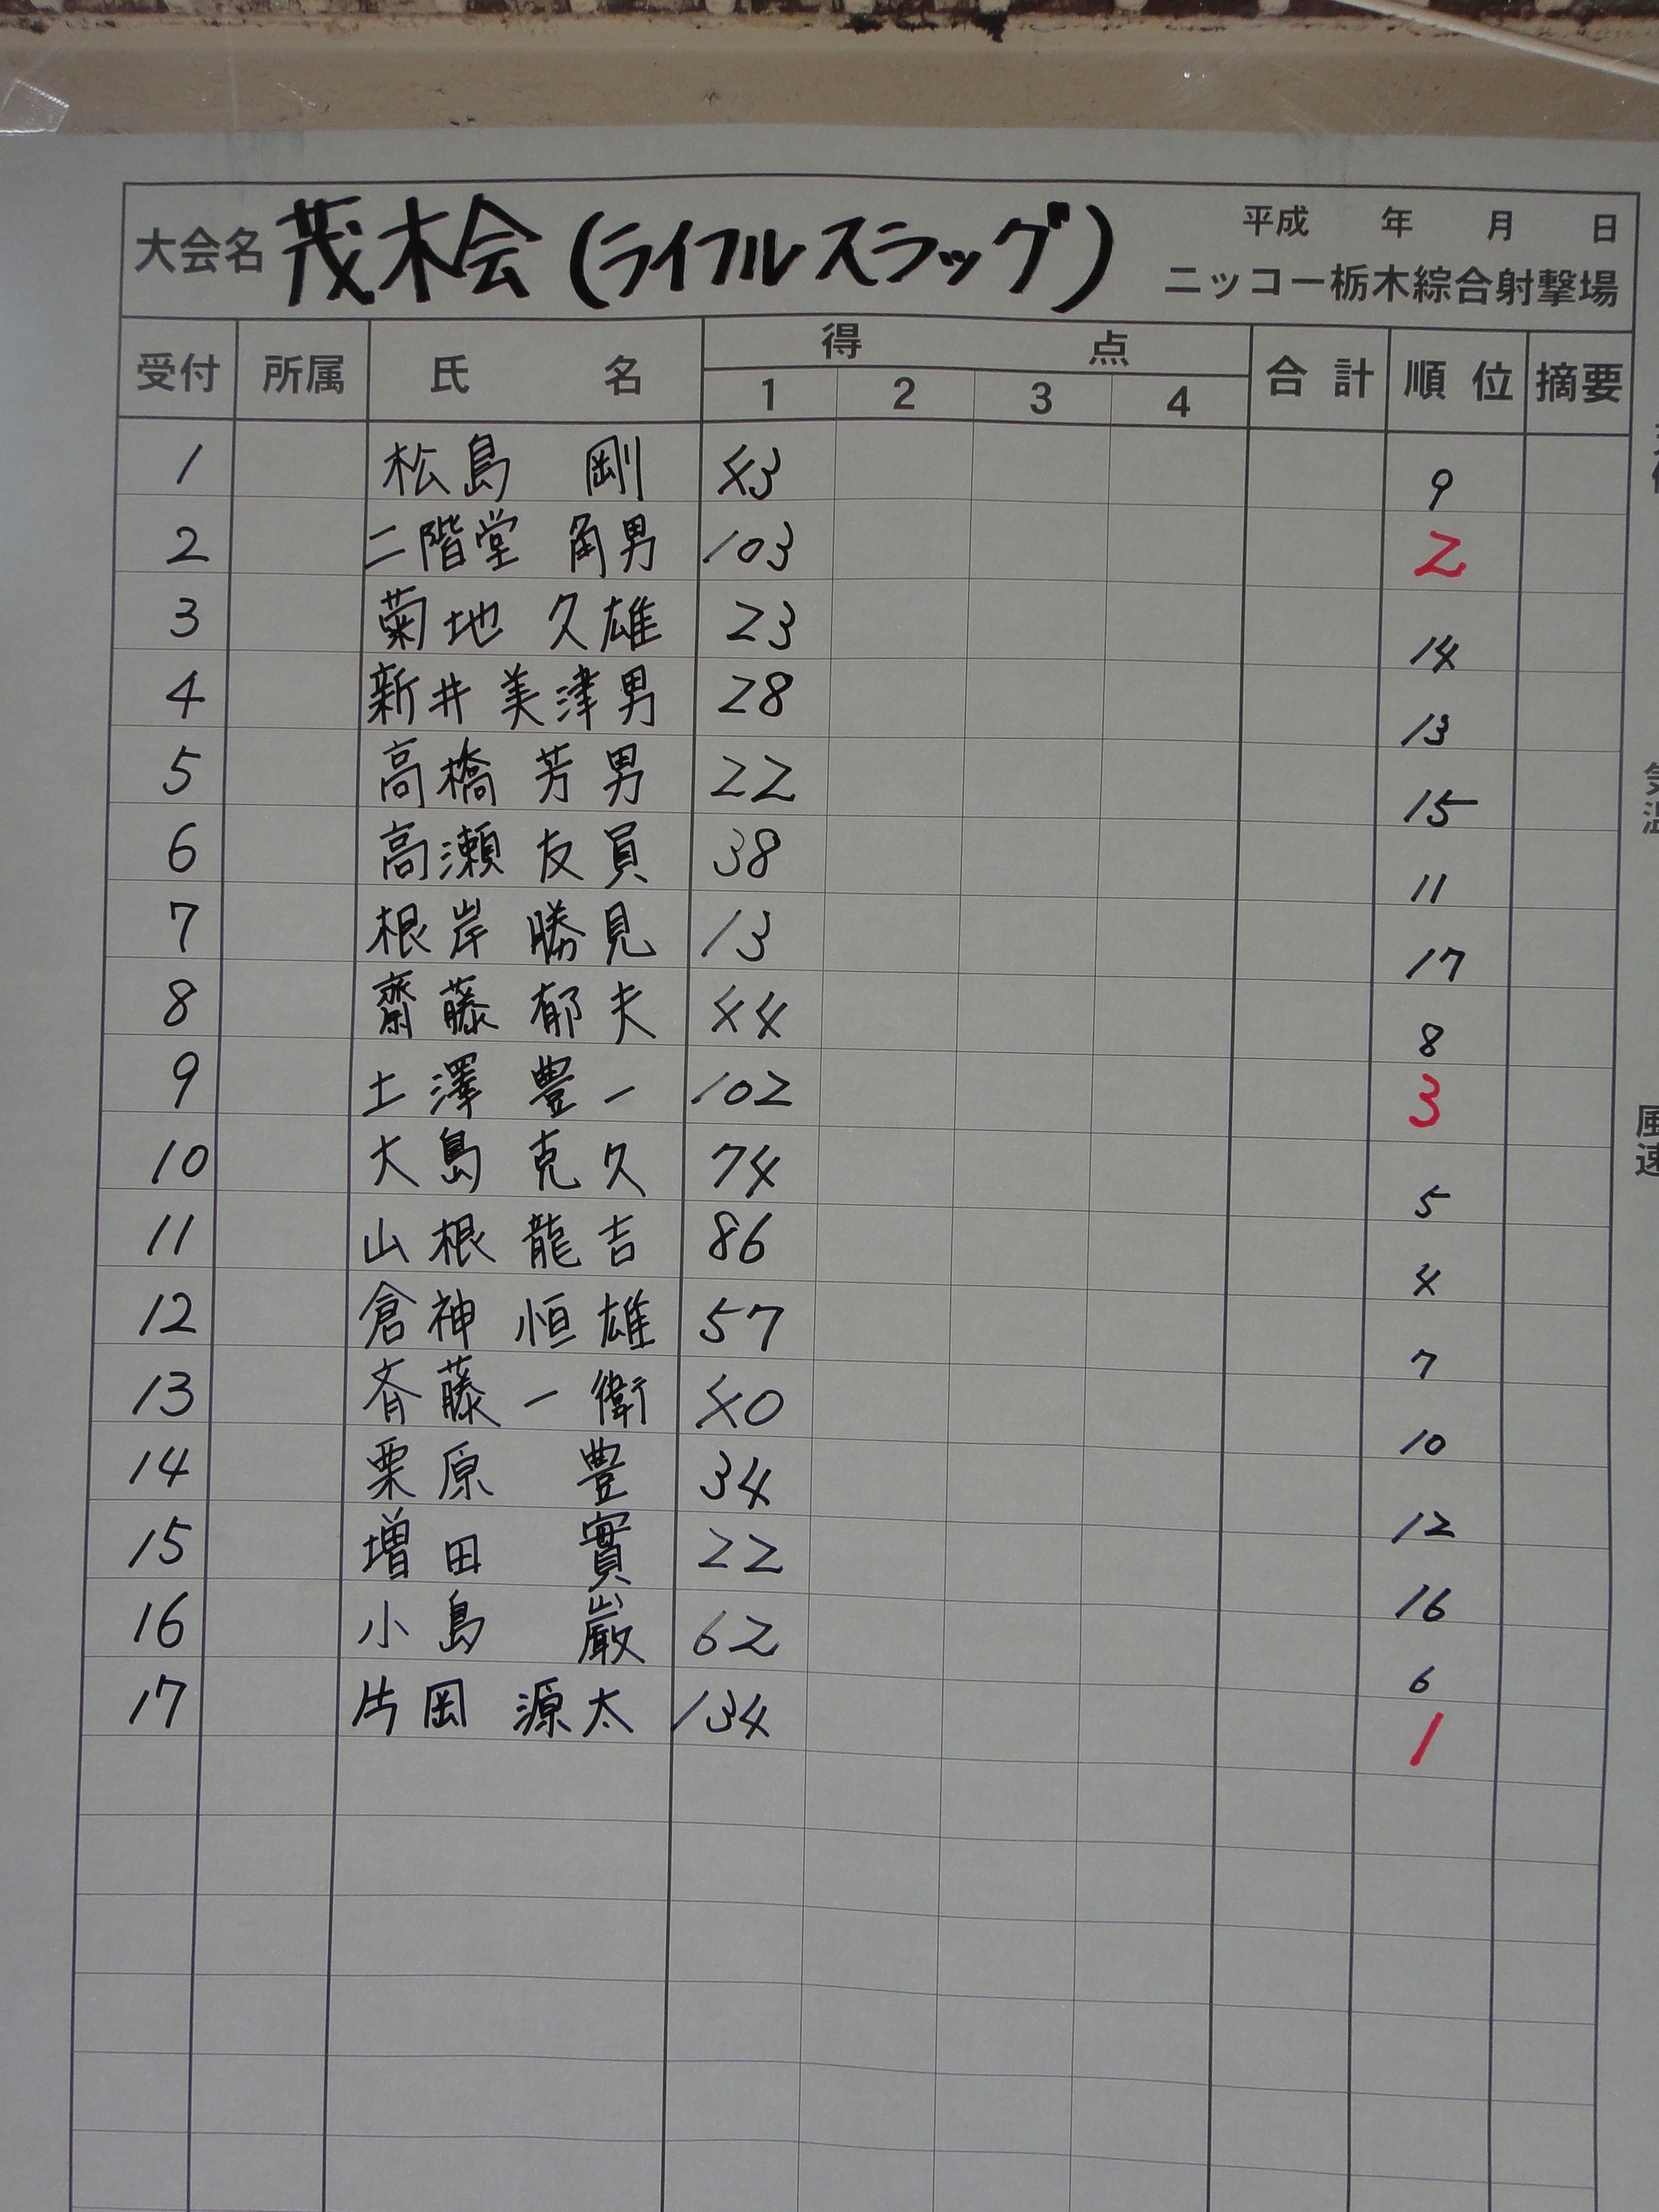 大会名 茂木会(ライフルスラッグ) 平成 年 月 日
ニッコー栃木綜合射撃場
受付 所属 氏 名 得 点 合計 順位 摘要
1 2 3 4
1 松島 剛 43 9
2 二階堂 角男 103 2
3 菊地 久雄 23 14
4 新井 美津男 28 13
5 高橋 芳男 22 15
6 高瀬 友員 38 11
7 根岸 勝見 13 17
8 齋藤 郁夫 44 8
9 土澤 豊一 102 3
10 大島 克久 74 5
11 山根 龍吉 86 4
12 倉神 恒雄 57 7
13 斉藤 一衛 40 10
14 栗原 豊 34 12
15 増田 實 22 16
16 小島 巌 62 6
17 片岡 源太 134 1
気温
風速